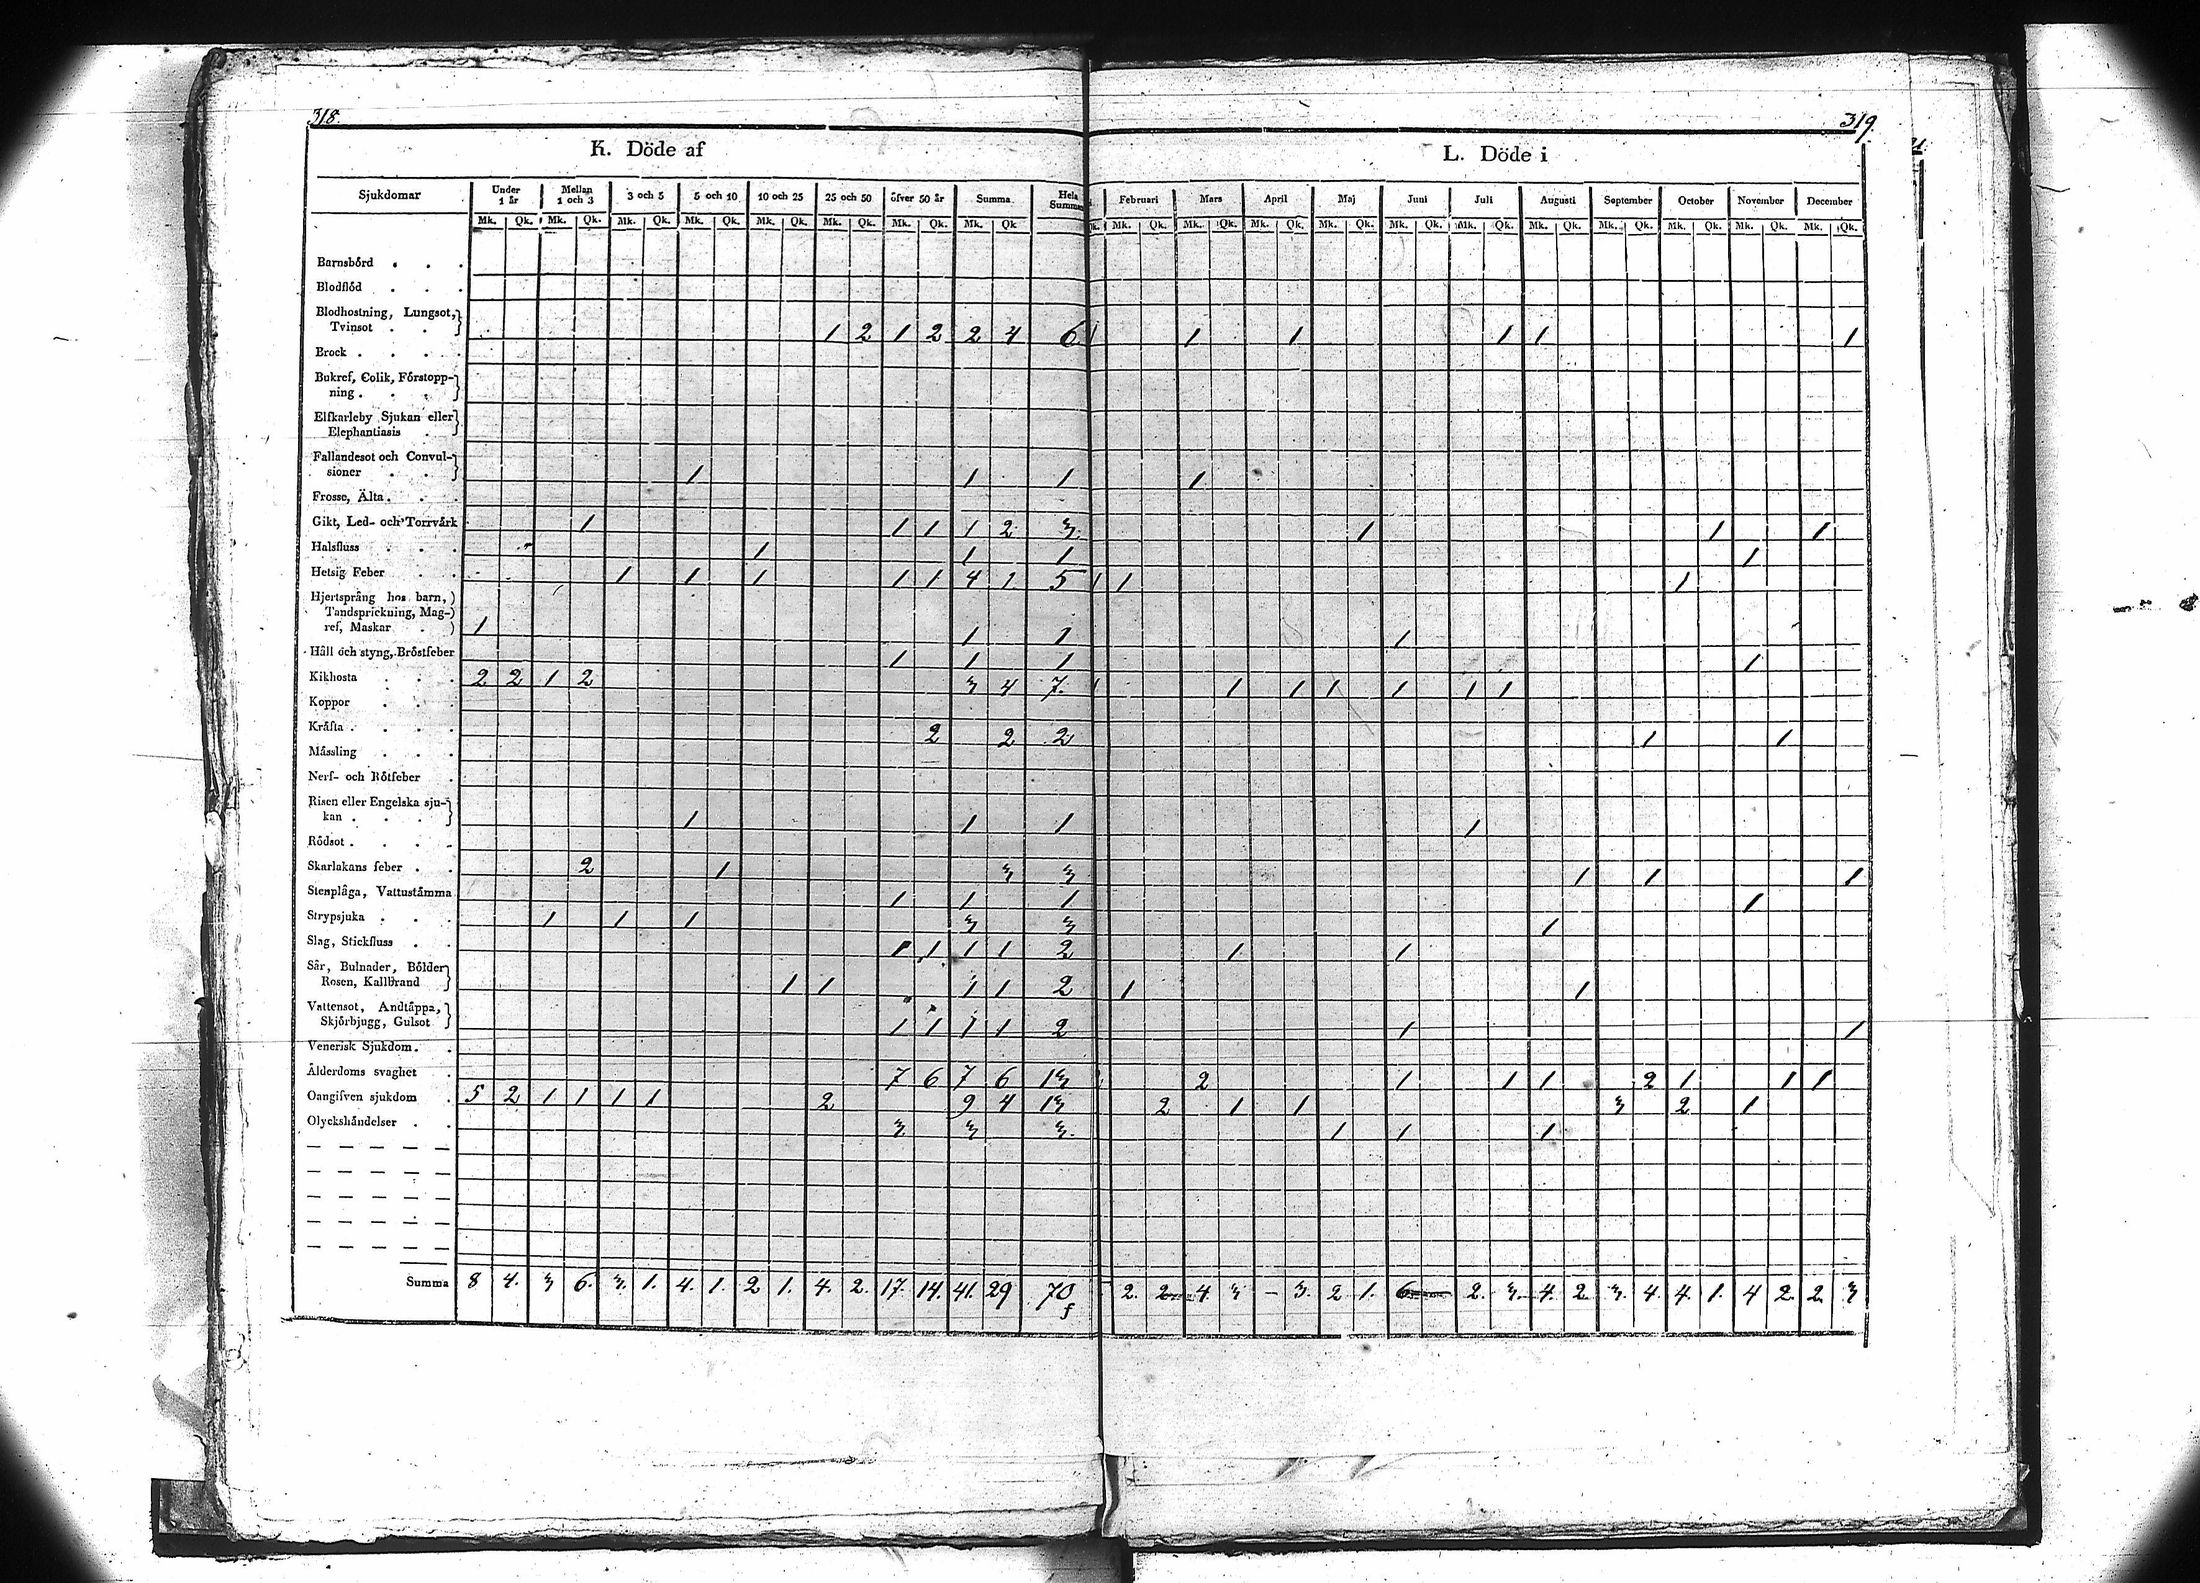 318.
319.
K. Döde af
L. Döde i
Sjukdomar Under 1 år Mellan 1 och 3 3 och 5 5 och 10 10 och 25 25 och 50 öfver 50 år Summa Hela Summan Februari Mars April Maj Juni Juli Augusti September October November December
Mk. Qk. Mk. Qk. Mk. Qk. Mk. Qk. Mk. Qk. Mk. Qk. Mk. Qk. Mk. Qk Mk. Qk. Mk. Qk. Mk. Qk. Mk. Qk. Mk. Qk. Mk. Qk. Mk. Qk. Mk. Qk. Mk. Qk. Mk. Qk. Mk. Qk.
Barnsbörd . . .
Blodflöd . . .
Blodhostning, Lungsot,
Tvinsot . . 1 2 1 2 2 4 6 1 1 1 1 1 1
Brock . . . .
Bukref, Colik, Förstopp-
ning . . .
Elfkarleby Sjukan eller
Elephantiasis .
Fallandesot och Convul-
sioner . . 1 1 1 1
Frosse, Älta . . .
Gikt, Led- och Torrvärk 1 1 1 1 2 3. 1 1 1
Halsfluss . . . 1 1 1 1
Hetsig Feber . . 1 1 1 1 1 4 1. 5 1 1 1
Hjertsprång hos barn,
Tandsprickning, Mag-
ref, Maskar . 1 1 1 1
Håll och styng, Bröstfeber 1 1 1 1
Kikhosta . . . 2 2 1 2 3 4 7. 1 1 1 1 1 1 1
Koppor . . .
Kräfta . . . . 2 2 2 1 1
Mässling . . .
Nerf- och Rötfeber .
Risen eller Engelska sju-
kan . . . 1 1 1 1
Rödsot . . . .
Skarlakans feber . . 2 1 3 3 1 1 1
Stenplåga, Vattustämma 1 1 1 1
Strypsjuka . . . 1 1 1 3 3 1
Slag, Stickfluss . . 1 1 1 1 2 1 1
Sår, Bulnader, Bölder
Rosen, Kallbrand 1 1 1 1 2 1 1
Vattensot, Andtäppa,
Skjörbjugg, Gulsot 1 1 1 1 2 1 1
Venerisk Sjukdom . .
Ålderdoms svaghet . 7 6 7 6 13 2 1 1 1 2 1 1 1
Oangifven sjukdom . 5 2 1 1 1 1 2 9 4 13 2 1 1 3 2 1
Olyckshändelser . . 3. 3 3. 1 1 1
Summa 8 4. 3 6. 3. 1. 4. 1. 2 1. 4. 2. 17. 14. 41. 29 70 2. 2 4. 3 – 3. 2 1. 6 2. 3. 4. 2. 3. 4. 4. 1. 4 2. 2. 3